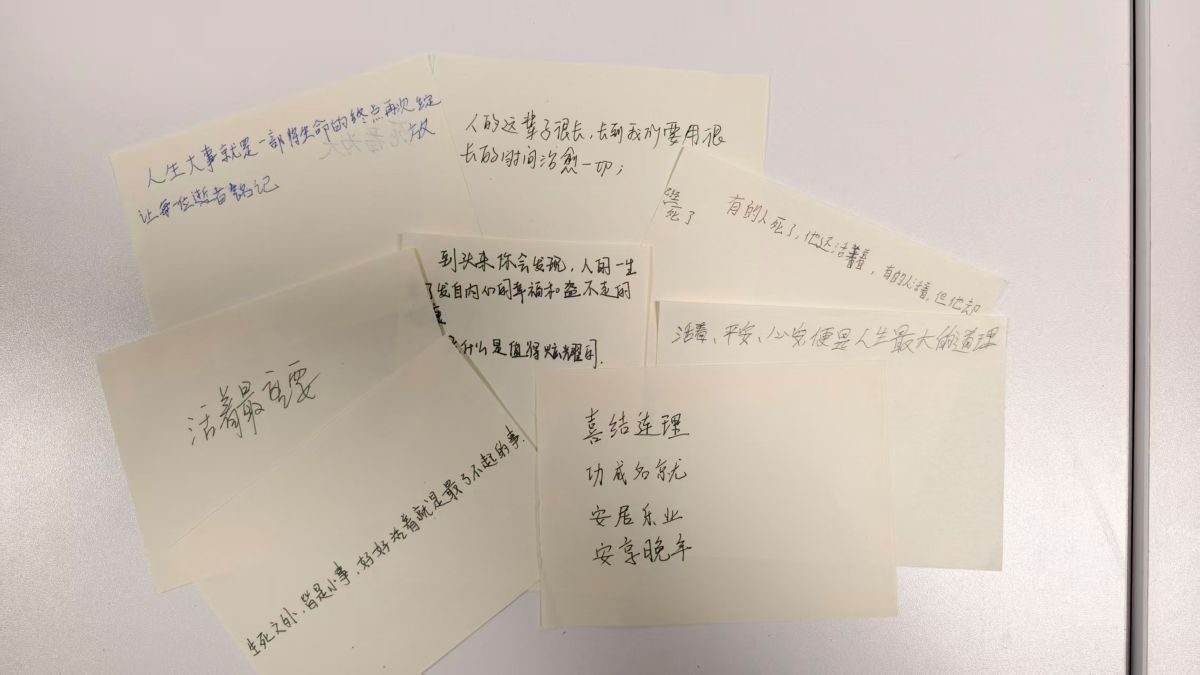 人生大事就是一部将生命的终点再次绽放
让每一位逝者铭记
人的这辈子很长，长到我们要用很
长的时间治愈一切；
有的人死了，他还活着，有的人活着，但他却
已经
死了
到头来你会发现，人的一生
了发自内们的幸福和盗不走的
什么是值得炫耀的.
活着、平安、心安便是人生最大的道理
活着最重要
生死之外，皆是小事，好好活着就是最了不起的事.
喜结连理
功成名就
安居乐业
安享晚年